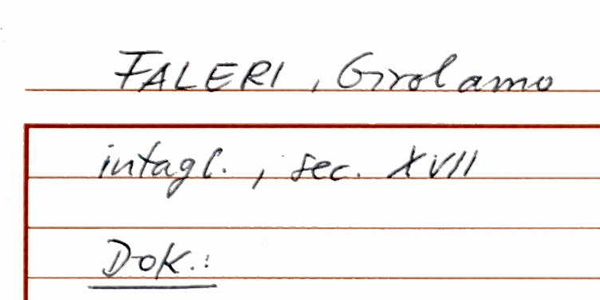 FALERI, Girolamo
intagl., sec. XVII
Dok.: